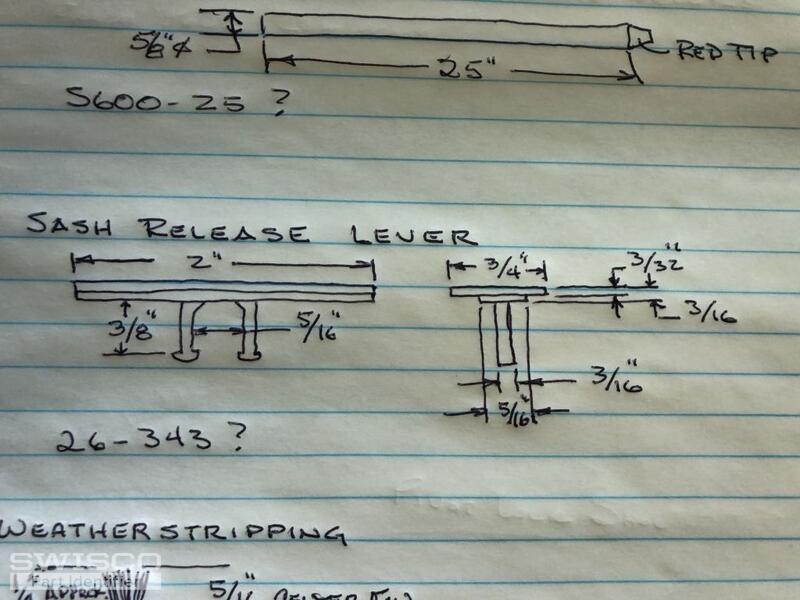 5/8" ¢
25"
RED TIP
S600-25 ?
SASH RELEASE LEVER
2"
3/4"
3/32"
3/8"
5/16"
3/16
3/16"
5/16"
26-343 ?
WEATHERSTRIPPING
SWISCO
Part Identifier
APPROX